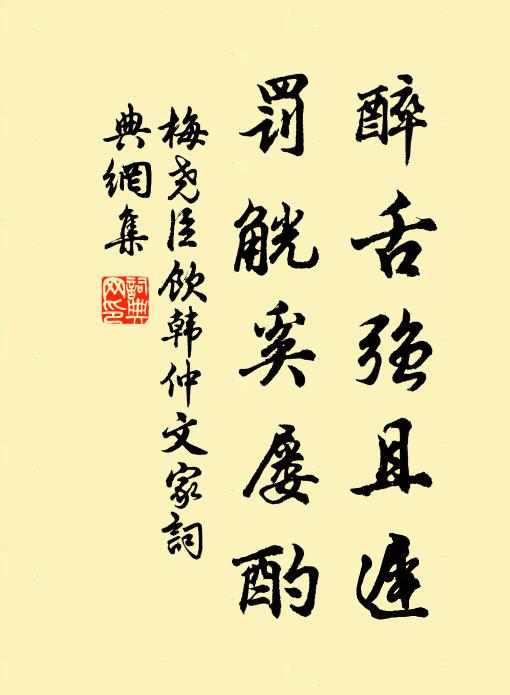 醉舌强且遲
罰觥奚屡酌
梅尧臣飲韩仲文家詞
典網集
詞典网印